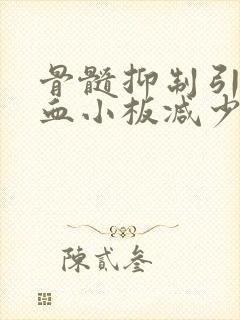 骨髓抑制引
血小板减少
陳貳叁